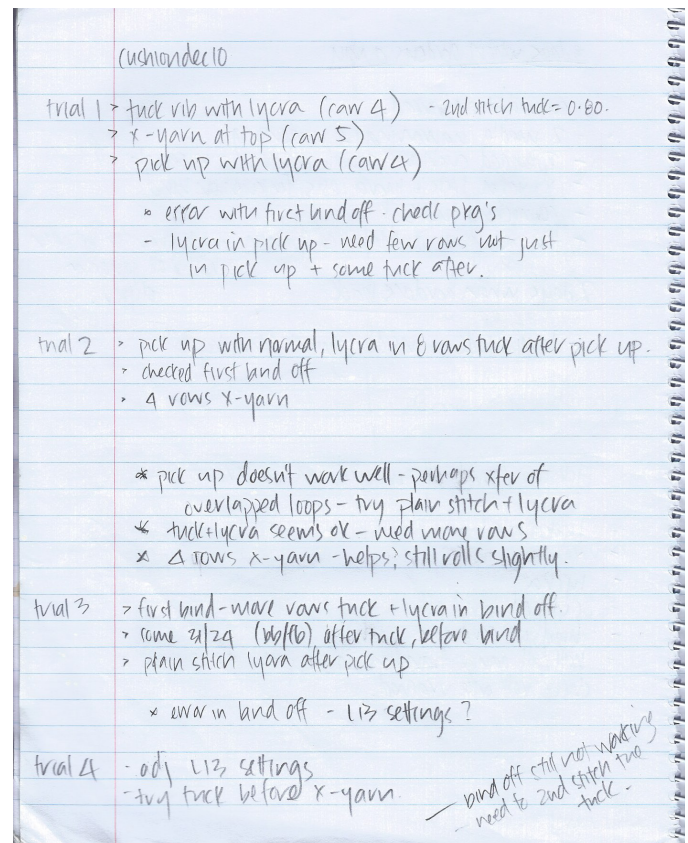 cushiondec10
trial 1 > tuck rib with lycra (carr 4) - 2nd stitch tuck = 0.80.
> x-yarn at top (carr 5)
> pick up with lycra (carr 4)
* error with first bind off - check pkg's
- lycra in pick up - need few rows not just
in pick up + some tuck after.
trial 2 > pick up with normal, lycra in 8 rows tuck after pick up.
> checked first bind off
> 4 rows x-yarn
* pick up doesn't work well - perhaps xfer of
overlapped loops - try plain stitch + lycra
* tuck+lycra seems ok - need more rows
* 4 rows x-yarn - helps; still rolls slightly.
trial 3 > first bind - more rows tuck + lycra in bind off.
> some 21/24 (bb/fb) after tuck, before bind
> plain stitch lycra after pick up
* error in bind off - L13 settings?
trial 4 - adj L13 settings
- try tuck before x-yarn.
- bind off still not working
- need to 2nd stitch the
tuck.